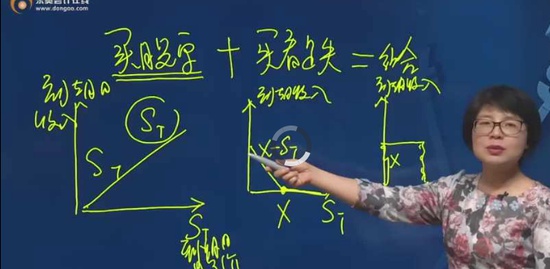 东奥会计在线
www.dongao.com
买股票 + 买看跌 = 组合
到期日
收入
S_T
S_T
S_T
到期日
到期收入
X-S_T
X
S_T
到期收入
X